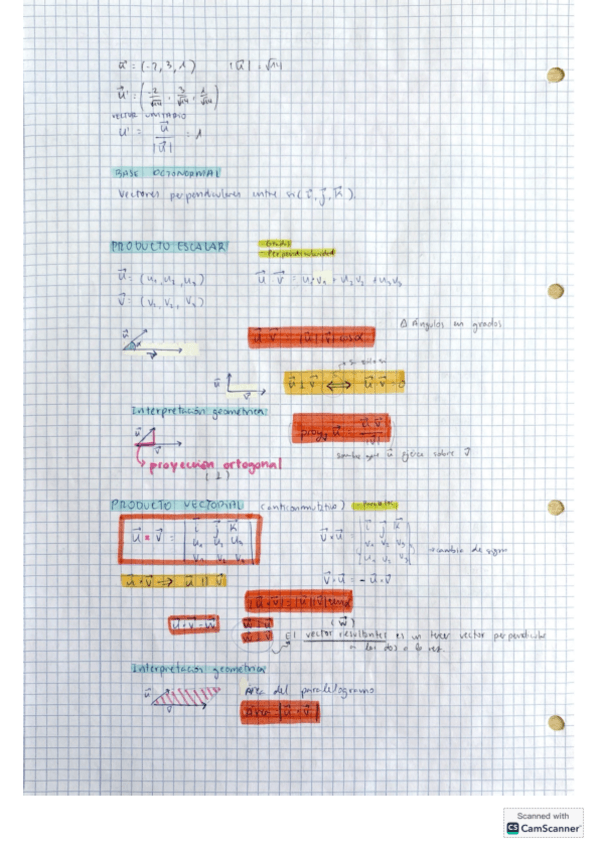 u⃗ = (-2, 3, 1) |u⃗| = √14
u⃗' = (-2/√14, 3/√14, 1/√14)
VECTOR UNITARIO
u' = u⃗/|u⃗| = 1
BASE OCTONORMAL
Vectores perpendiculares entre si (i⃗, j⃗, k⃗).
PRODUCTO ESCALAR
Grados
Perpendicularidad
u⃗ = (u₁, u₂, u₃) u⃗ · v⃗ = u₁v₁ + u₂v₂ + u₃v₃
v⃗ = (v₁, v₂, v₃)
Δ Ángulos en grados
u⃗ v⃗ = |u⃗| |v⃗| cos α
u⃗ ⊥ v⃗ ⟺ u⃗ · v⃗ = 0
Interpretación geométrica
u⃗ v⃗
proyección ortogonal
(⊥)
sombra que u⃗ ejerce sobre v⃗
PRODUCTO VECTORIAL (anticonmutativo)
paralelos
u⃗ × v⃗ = | i⃗ j⃗ k⃗ |
u₁ u₂ u₃
v₁ v₂ v₃
v⃗ × u⃗ = | i⃗ j⃗ k⃗ |
v₁ v₂ v₃
u₁ u₂ u₃
→ cambia de signo
u⃗ × v⃗ ⟹ u⃗ || v⃗ v⃗ × u⃗ = - u⃗ × v⃗
u⃗ × v⃗ = w⃗
(w⃗)
El vector resultantes es un tercer vector perpendicular
a los dos a la vez.
Interpretación geométrica
Área del paralelogramo
Área = |u⃗ × v⃗|
Scanned with
CS CamScanner